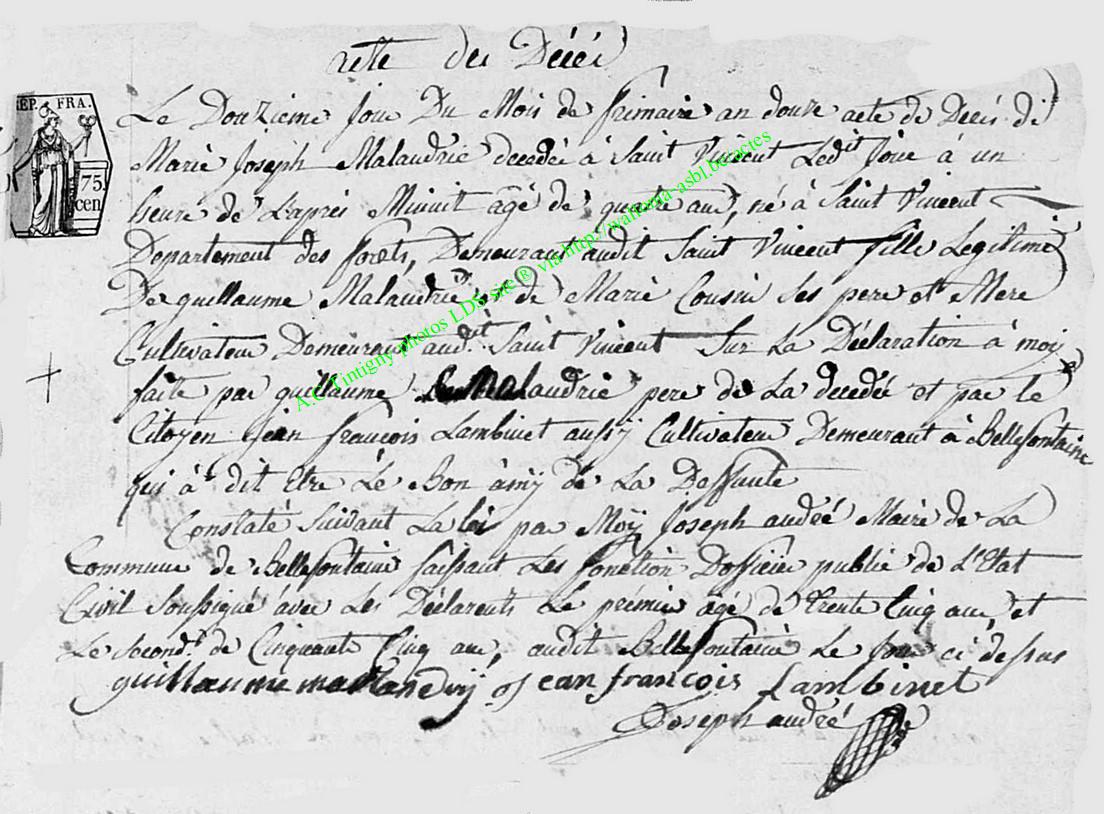 acte de Décé
REP. FRA.
75.
cen
Le Douzieme jour Du Mois de frimaire an douze acte de Decés de
Marie Joseph Malaudrie decedée à Saint Vincent Ledit Jour à un
heure de Laprés Minuit agé de quatre ans, né à Saint Vincent
Departement des forets, Demeurant audit Saint Vincent fille Legitime
De guillaume Malaudrie et de Marie Cousin Ses pere et Mere
Cultivateur Demeurant audit Saint Vincent Sur La Déclaration à moy
faite par guillaume Malaudrie pere de La decedée et par le
Citoyen jean francois Lambinet aussy Cultivateur Demeurant à Bellefontaine
qui à dit Etre Le Bon àmy de La Deffunte
Constaté Suivant La loi par Moÿ Joseph andré Maire de La
Commune de Bellefontaine faissant Les fonction Dofficier public de L'Etat
Civil Soussigné àvec Les Déclarents Le prémier agé de trente Cinq ans, et
Le second de Cinquante Cinq ans, audit Bellefontaine Le jour ci dessus
guillaume jean françois Lambinet
Joseph andré
A.C. Tintigny photos LDS site ® via http://wanama-asbl.be/actes